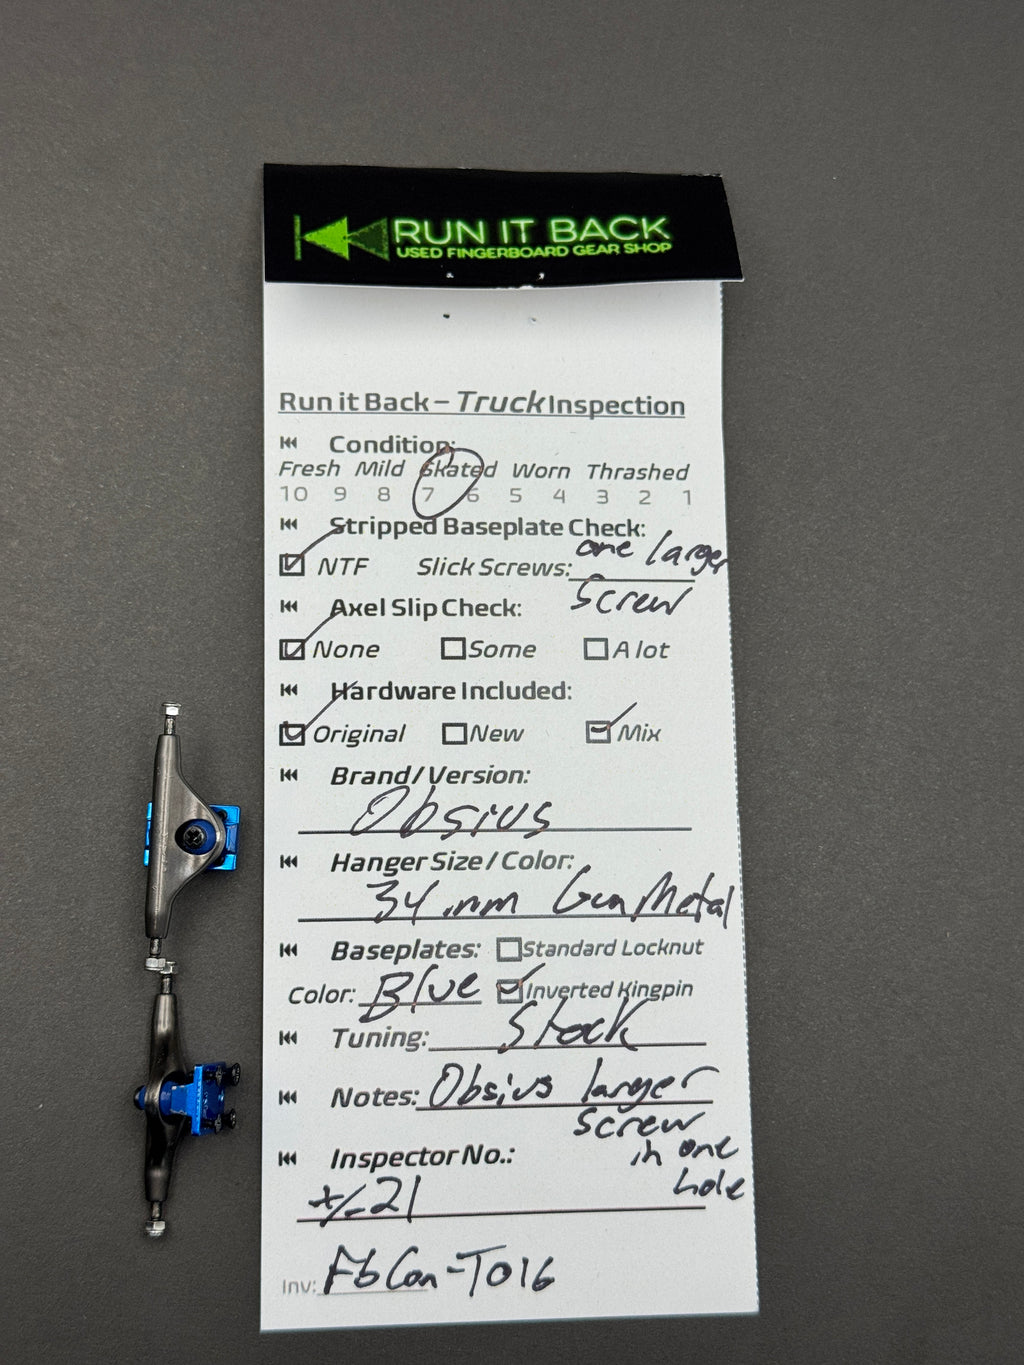 RUN IT BACK
USED FINGERBOARD GEAR SHOP
Run it Back – Truck Inspection
Condition:
Fresh Mild Skated Worn Thrashed
10 9 8 7 6 5 4 3 2 1
Stripped Baseplate Check:
NTF Slick Screws: one larger
screw
Axel Slip Check:
None Some A lot
Hardware Included:
Original New Mix
Brand/Version:
Obsius
Hanger Size / Color:
34 mm Gun Metal
Baseplates: Standard Locknut
Color: Blue Inverted Kingpin
Tuning: Stock
Notes: Obsius larger
screw
in one
hole
Inspector No.:
+/-21
Inv: FbCon-T016